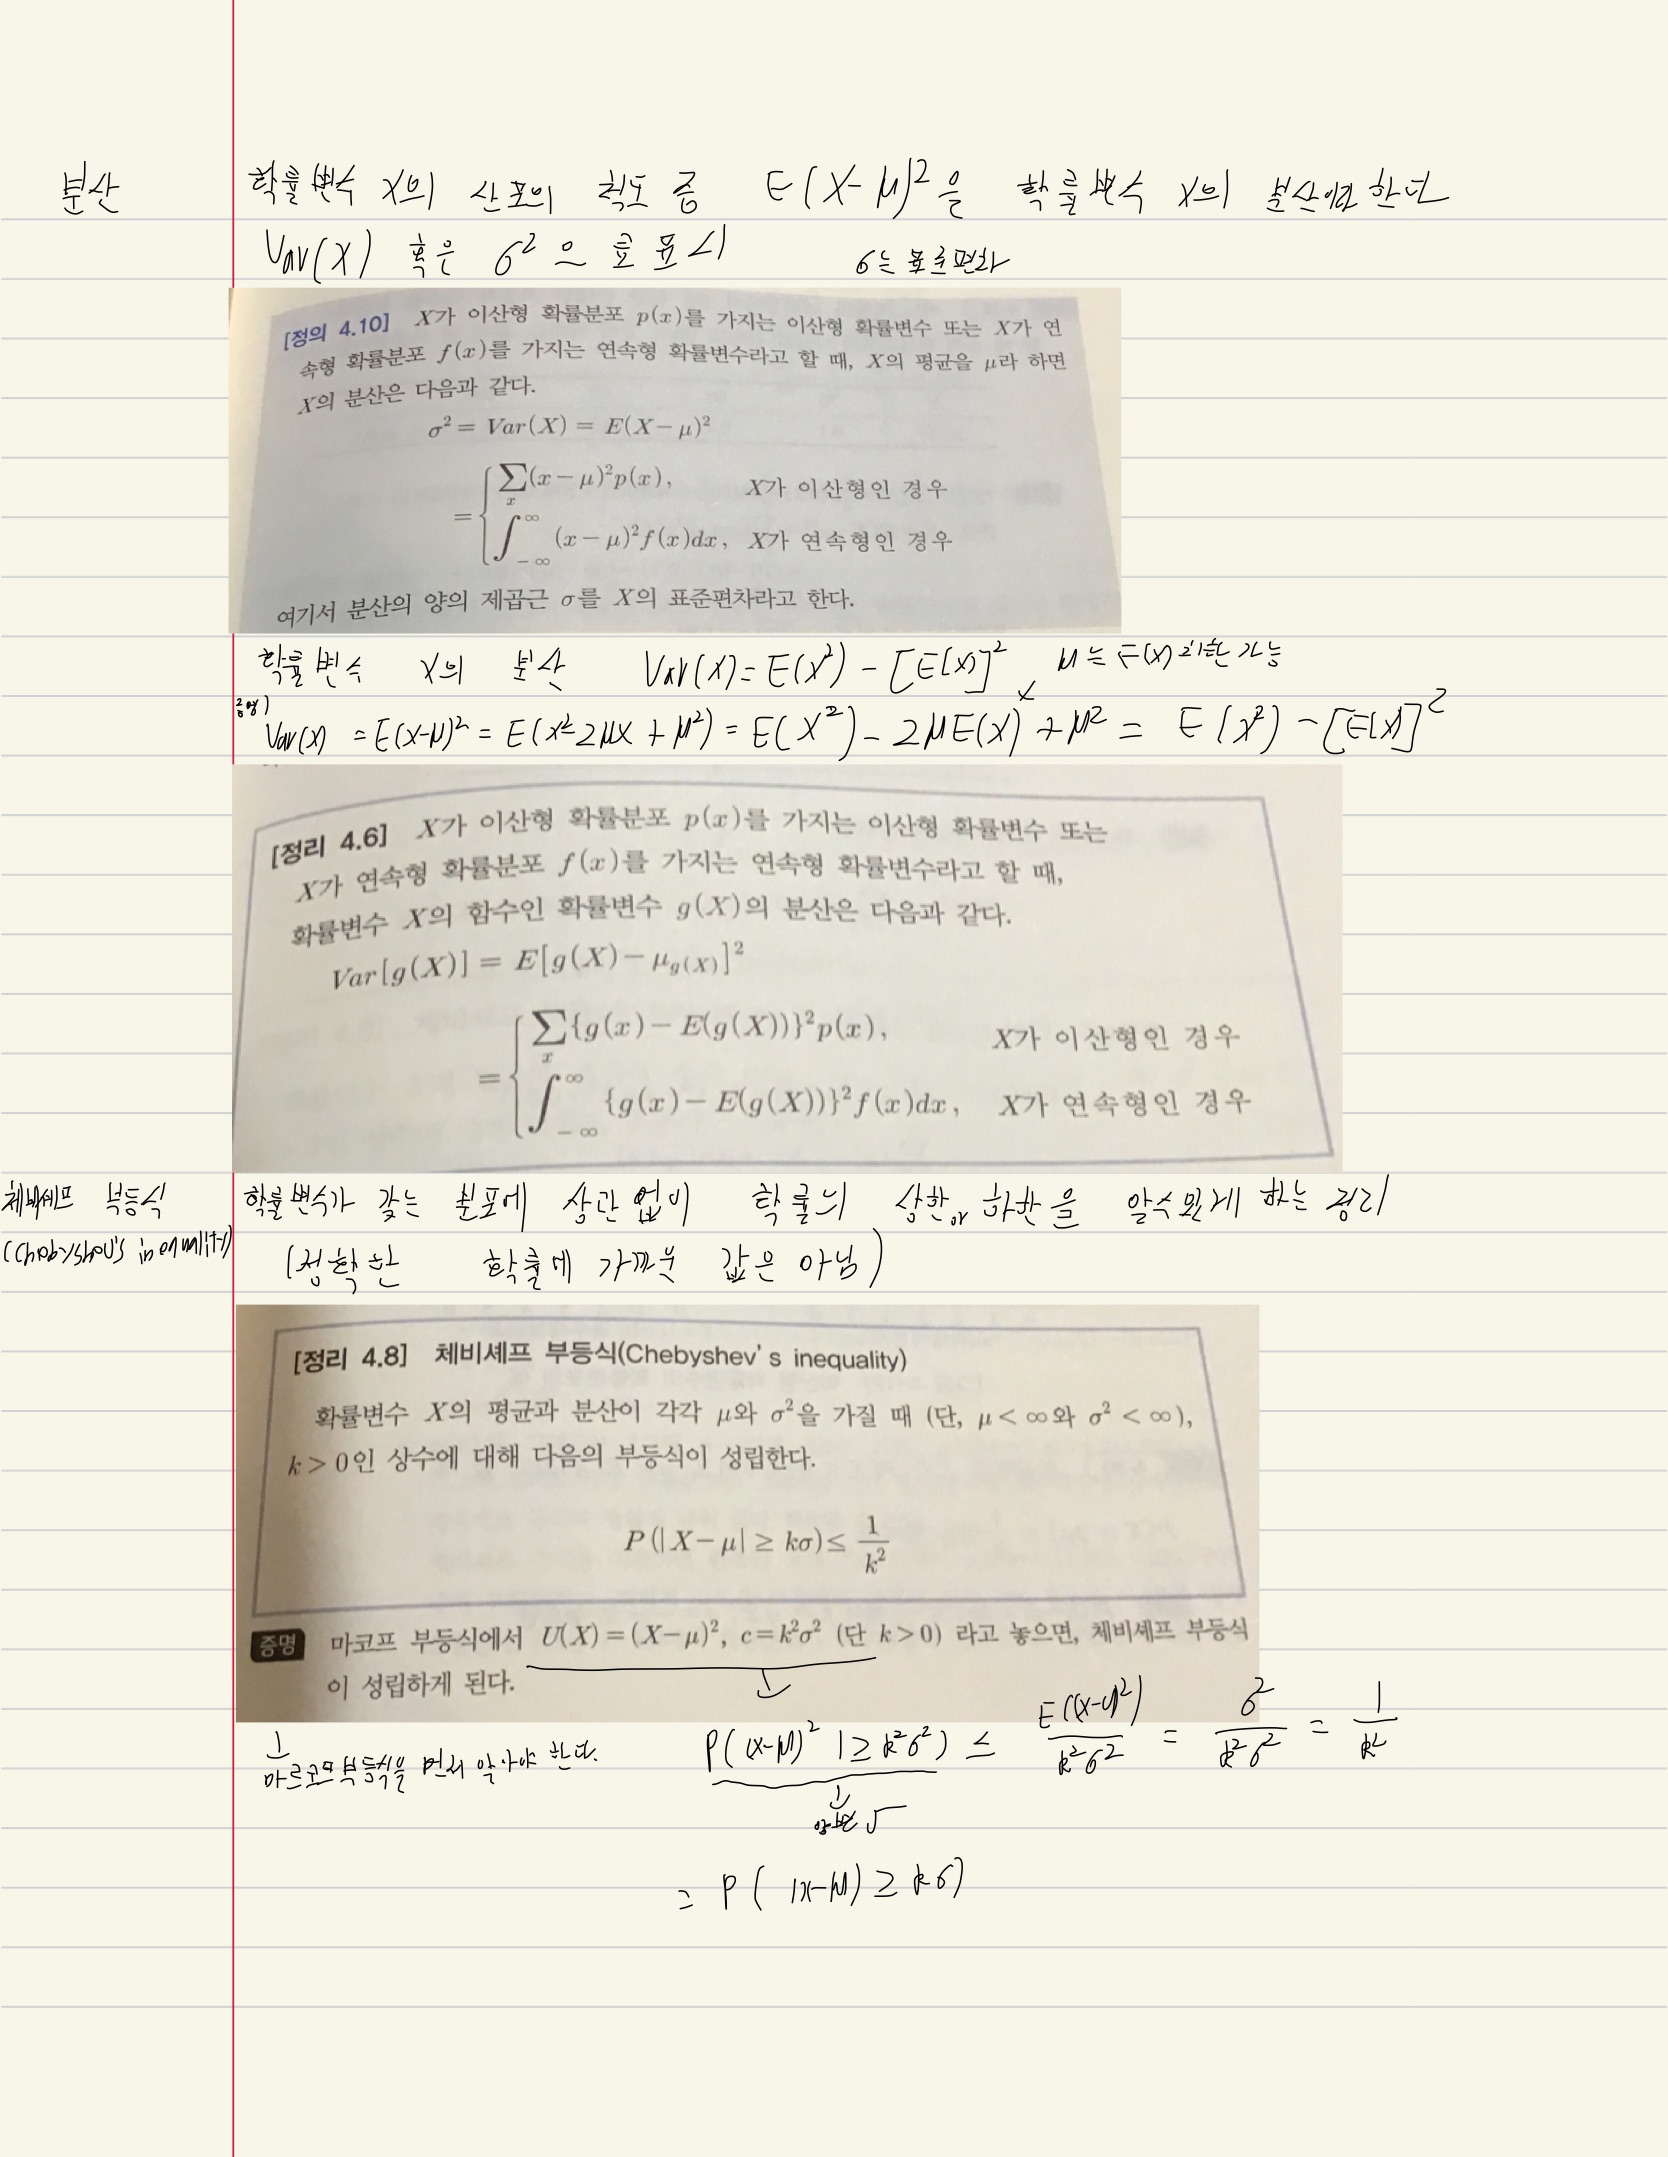 분산
확률변수 X의 산포의 척도 중 E(X-μ)²을 확률변수 X의 분산이라 한다
Var(X) 혹은 σ²으로 표시 σ는 표준편차
[정의 4.10] X가 이산형 확률분포 p(x)를 가지는 이산형 확률변수 또는 X가 연
속형 확률분포 f(x)를 가지는 연속형 확률변수라고 할 때, X의 평균을 μ라 하면
X의 분산은 다음과 같다.
σ² = Var(X) = E(X-μ)²
= { ∑ₓ(x-μ)²p(x), X가 이산형인 경우
∫_{-∞}^{∞} (x-μ)²f(x)dx, X가 연속형인 경우
여기서 분산의 양의 제곱근 σ를 X의 표준편차라고 한다.
확률변수 X의 분산 Var(X) = E(X²) - [E(X)]² μ는 E(X) 치환 가능
증명)
Var(X) = E(X-μ)² = E(X² 2μX + μ²) = E(X²) - 2μE(X) + μ² = E(X²) - [E(X)]²
[정리 4.6] X가 이산형 확률분포 p(x)를 가지는 이산형 확률변수 또는
X가 연속형 확률분포 f(x)를 가지는 연속형 확률변수라고 할 때,
확률변수 X의 함수인 확률변수 g(X)의 분산은 다음과 같다.
Var[g(X)] = E[g(X)-μ_{g(X)}]²
= { ∑ₓ{g(x)-E(g(X))}²p(x), X가 이산형인 경우
∫_{-∞}^{∞} {g(x)-E(g(X))}²f(x)dx, X가 연속형인 경우
체비셰프 부등식
(Chebyshev's inequality)
확률변수가 갖는 분포에 상관 없이 확률의 상한 or 하한을 알수 있게 하는 정리
(정확한 확률에 가까운 값은 아님)
[정리 4.8] 체비셰프 부등식(Chebyshev's inequality)
확률변수 X의 평균과 분산이 각각 μ와 σ²을 가질 때 (단, μ<∞와 σ²<∞),
k>0인 상수에 대해 다음의 부등식이 성립한다.
P(|X-μ| ≥ kσ) ≤ 1/k²
증명 마코프 부등식에서 U(X)=(X-μ)², c=k²σ² (단 k>0) 라고 놓으면, 체비셰프 부등식
이 성립하게 된다.
↓
마르코프부등식을 먼저 알아야 한다.
P((X-μ)² | ≥ k²σ²) ≤ E((X-μ)²)/k²σ² = σ²/k²σ² = 1/k²
↓
양변 √
= P( |X-μ) ≥ kσ)